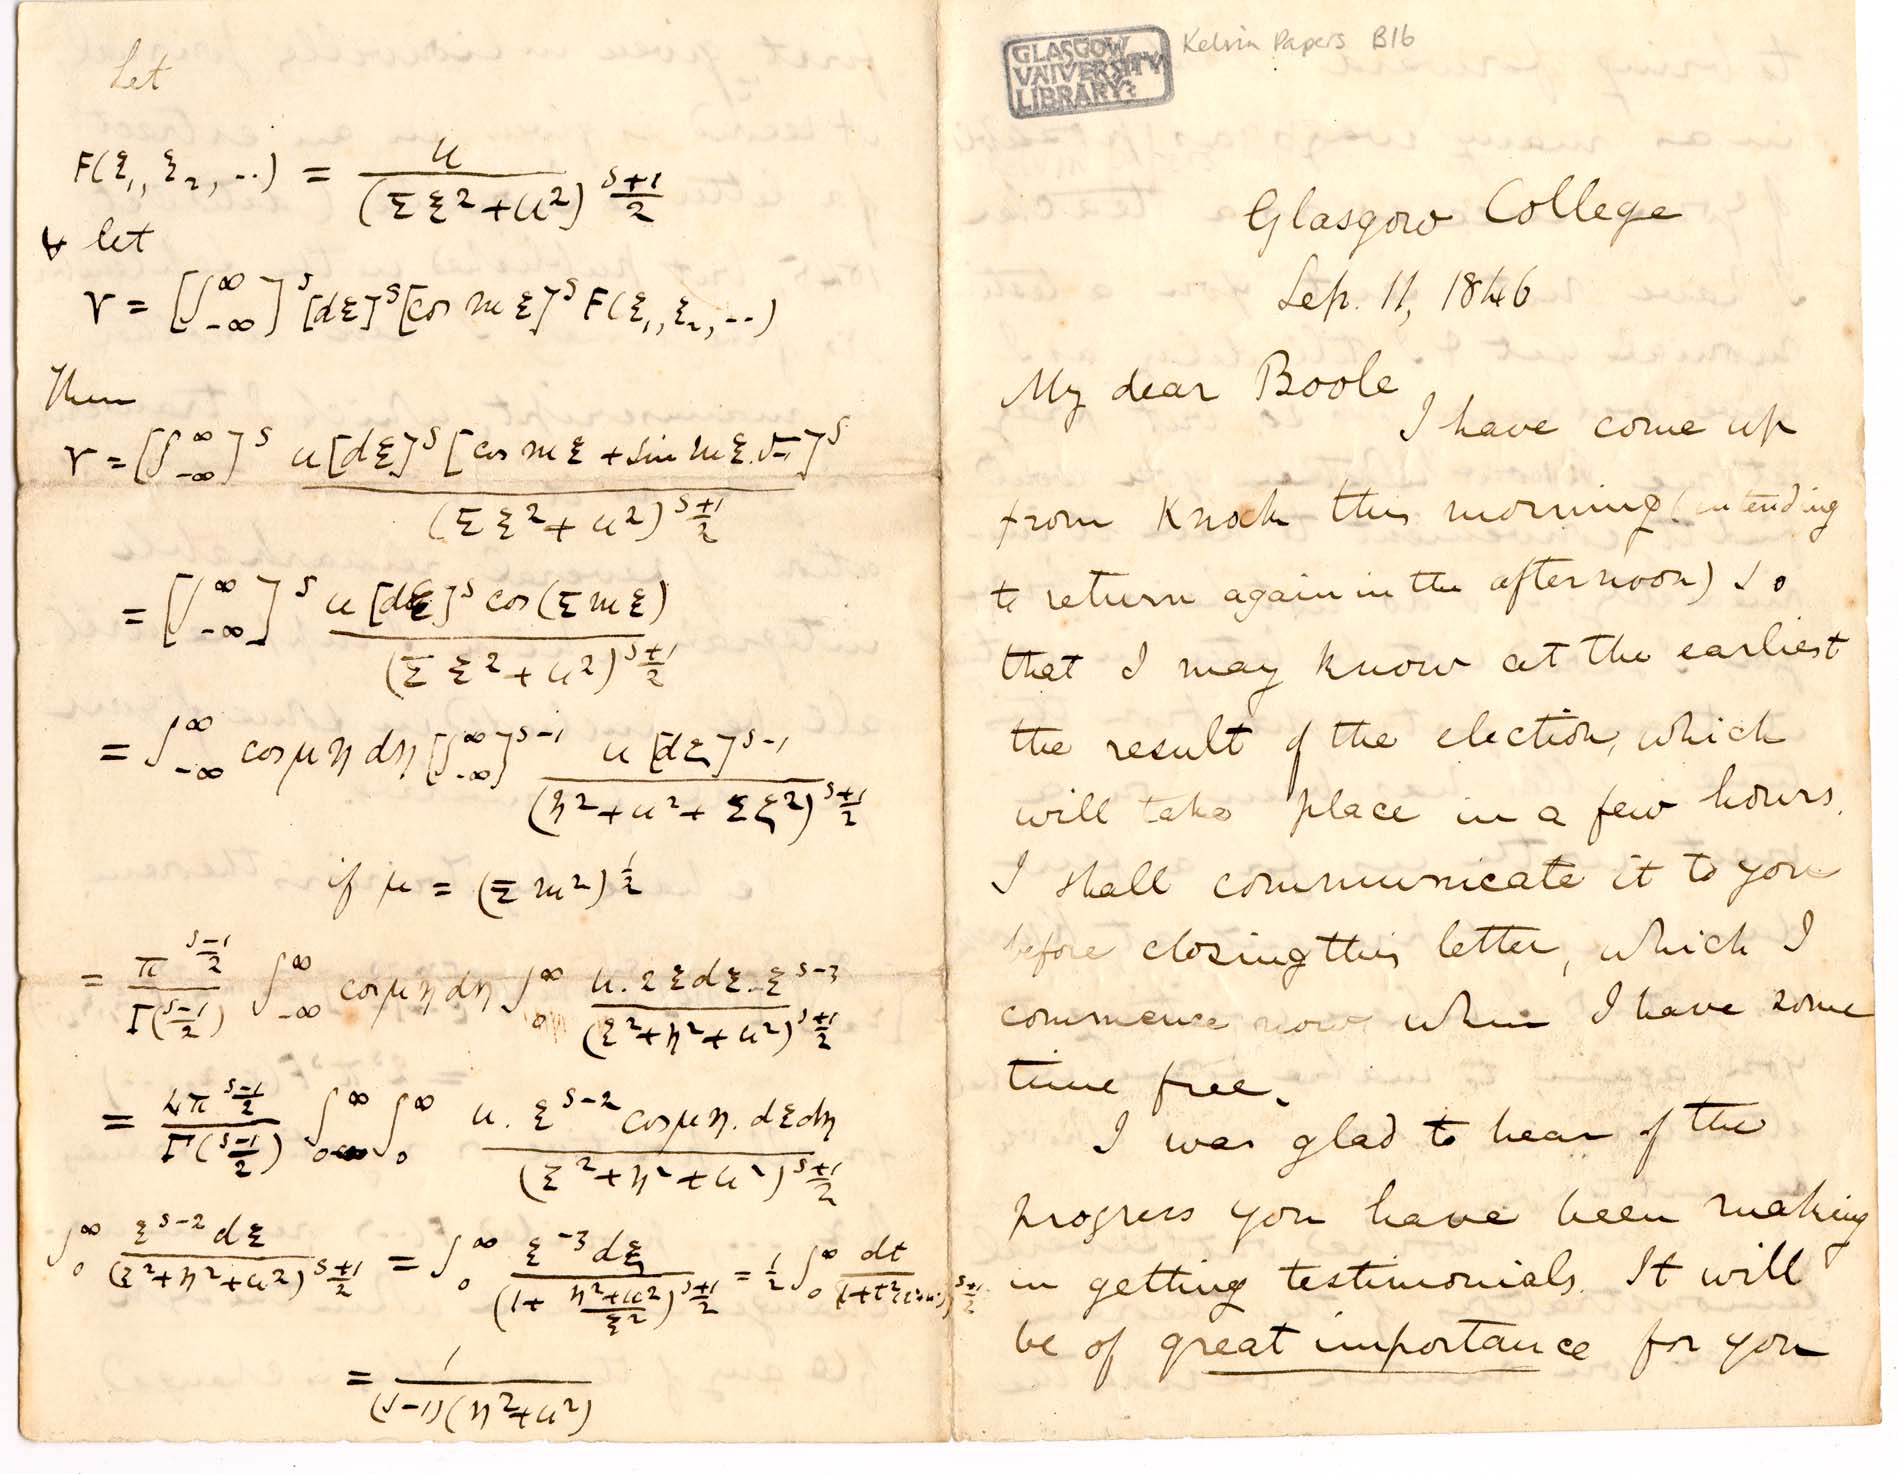 Let
F(ξ₁, ξ₂, ··) = u / (Σξ² + u²)^{(s+1)/2}
& let
v = [∫_{-∞}^{∞}]^s [dξ]^s [cos mξ]^s F(ξ₁, ξ₂, ··)
Then
v = [∫_{-∞}^{∞}]^s u[dξ]^s [cos mξ + sin mξ.√-1]^s / (Σξ² + u²)^{(s+1)/2}
= [∫_{-∞}^{∞}]^s u[dξ]^s cos(Σmξ) / (Σξ² + u²)^{(s+1)/2}
= ∫_{-∞}^{∞} cos μη dη [∫_{-∞}^{∞}]^{s-1} u[dξ]^{s-1} / (η² + u² + Σξ²)^{(s+1)/2}
if μ = (Σm²)^{1/2}
= π^{(s-1)/2} / Γ((s-1)/2) ∫_{-∞}^{∞} cos μη dη ∫_{0}^{∞} u.2ξdξ.ξ^{s-3} / (ξ² + η² + u²)^{(s+1)/2}
= 4π^{(s-1)/2} / Γ((s-1)/2) ∫_{0}^{∞} ∫_{0}^{∞} u.ξ^{s-2} cos μη.dξdη / (ξ² + η² + u²)^{(s+1)/2}
∫_{0}^{∞} ξ^{s-2}dξ / (ξ² + η² + u²)^{(s+1)/2} = ∫_{0}^{∞} ξ^{-3}dξ / (1 + (η²+u²)/ξ²)^{(s+1)/2} = ½ ∫_{0}^{∞} dt
= 1 / (s-1)(η² + u²)
GLASGOW
UNIVERSITY
LIBRARY:
Kelvin Papers B16
Glasgow College
Sep. 11, 1846
My dear Boole
I have come up
from Knock this morning (intending
to return again in the afternoon) so
that I may know at the earliest
the result of the election, which
will take place in a few hours.
I shall communicate it to you
before closing this letter, which I
commence now when I have some
time free.
I was glad to hear of the
progress you have been making
in getting testimonials. It will
be of great importance for you